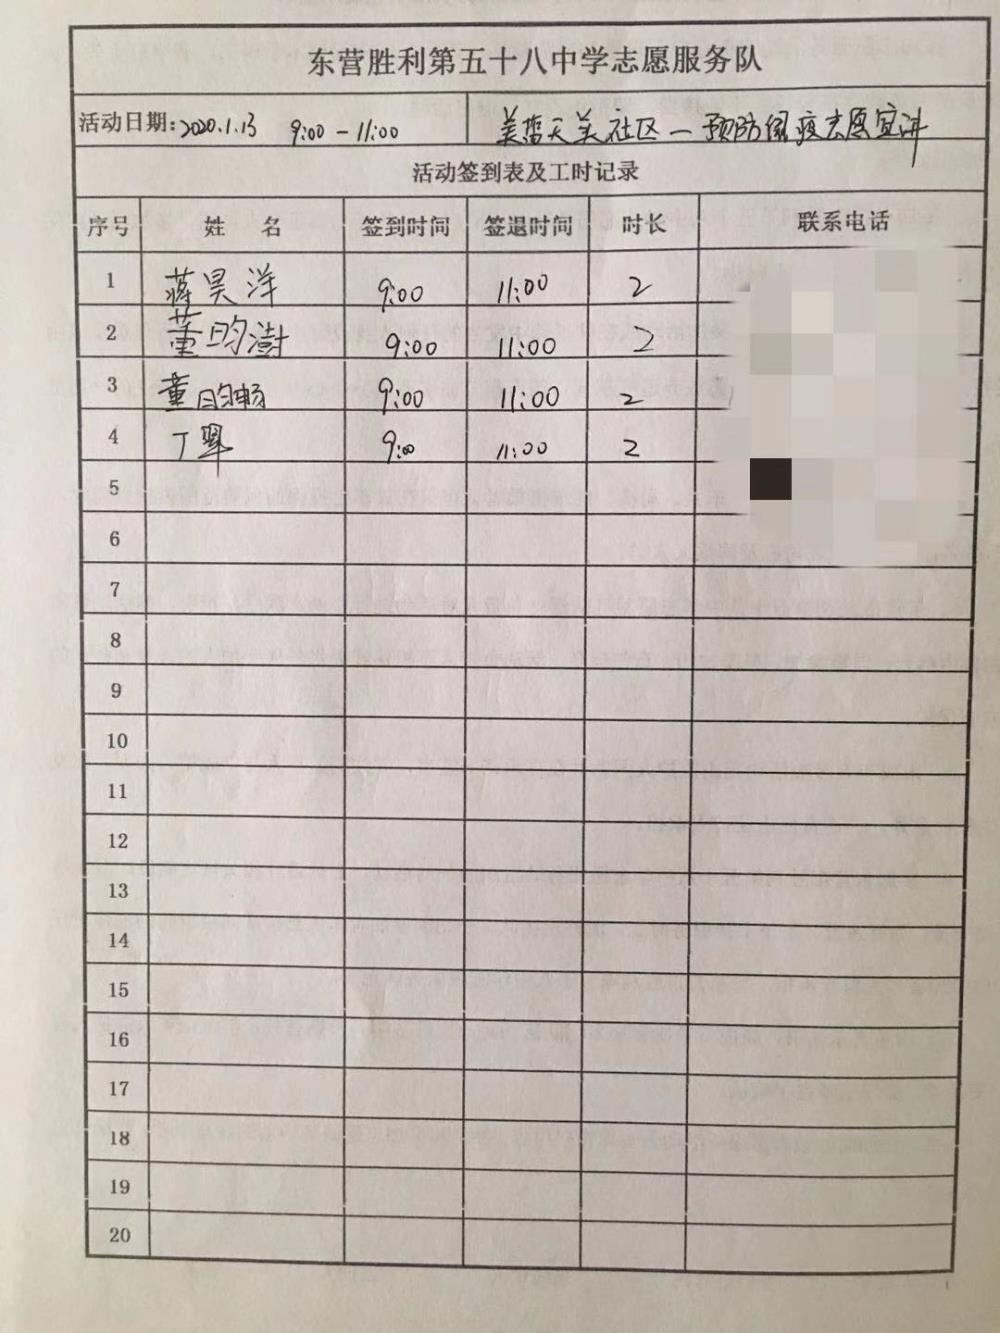 东营胜利第五十八中学志愿服务队
活动日期:2020.1.13 9:00-11:00 天美社区-预防 疫志愿宣讲
活动签到表及工时记录
序号 姓 名 签到时间 签退时间 时长 联系电话
1 蒋昊洋 9:00 11:00 2
2 董昀澍 9:00 11:00 2
3 董昀畅 9:00 11:00 2
4 丁 9:00 11:00 2
5
6
7
8
9
10
11
12
13
14
15
16
17
18
19
20